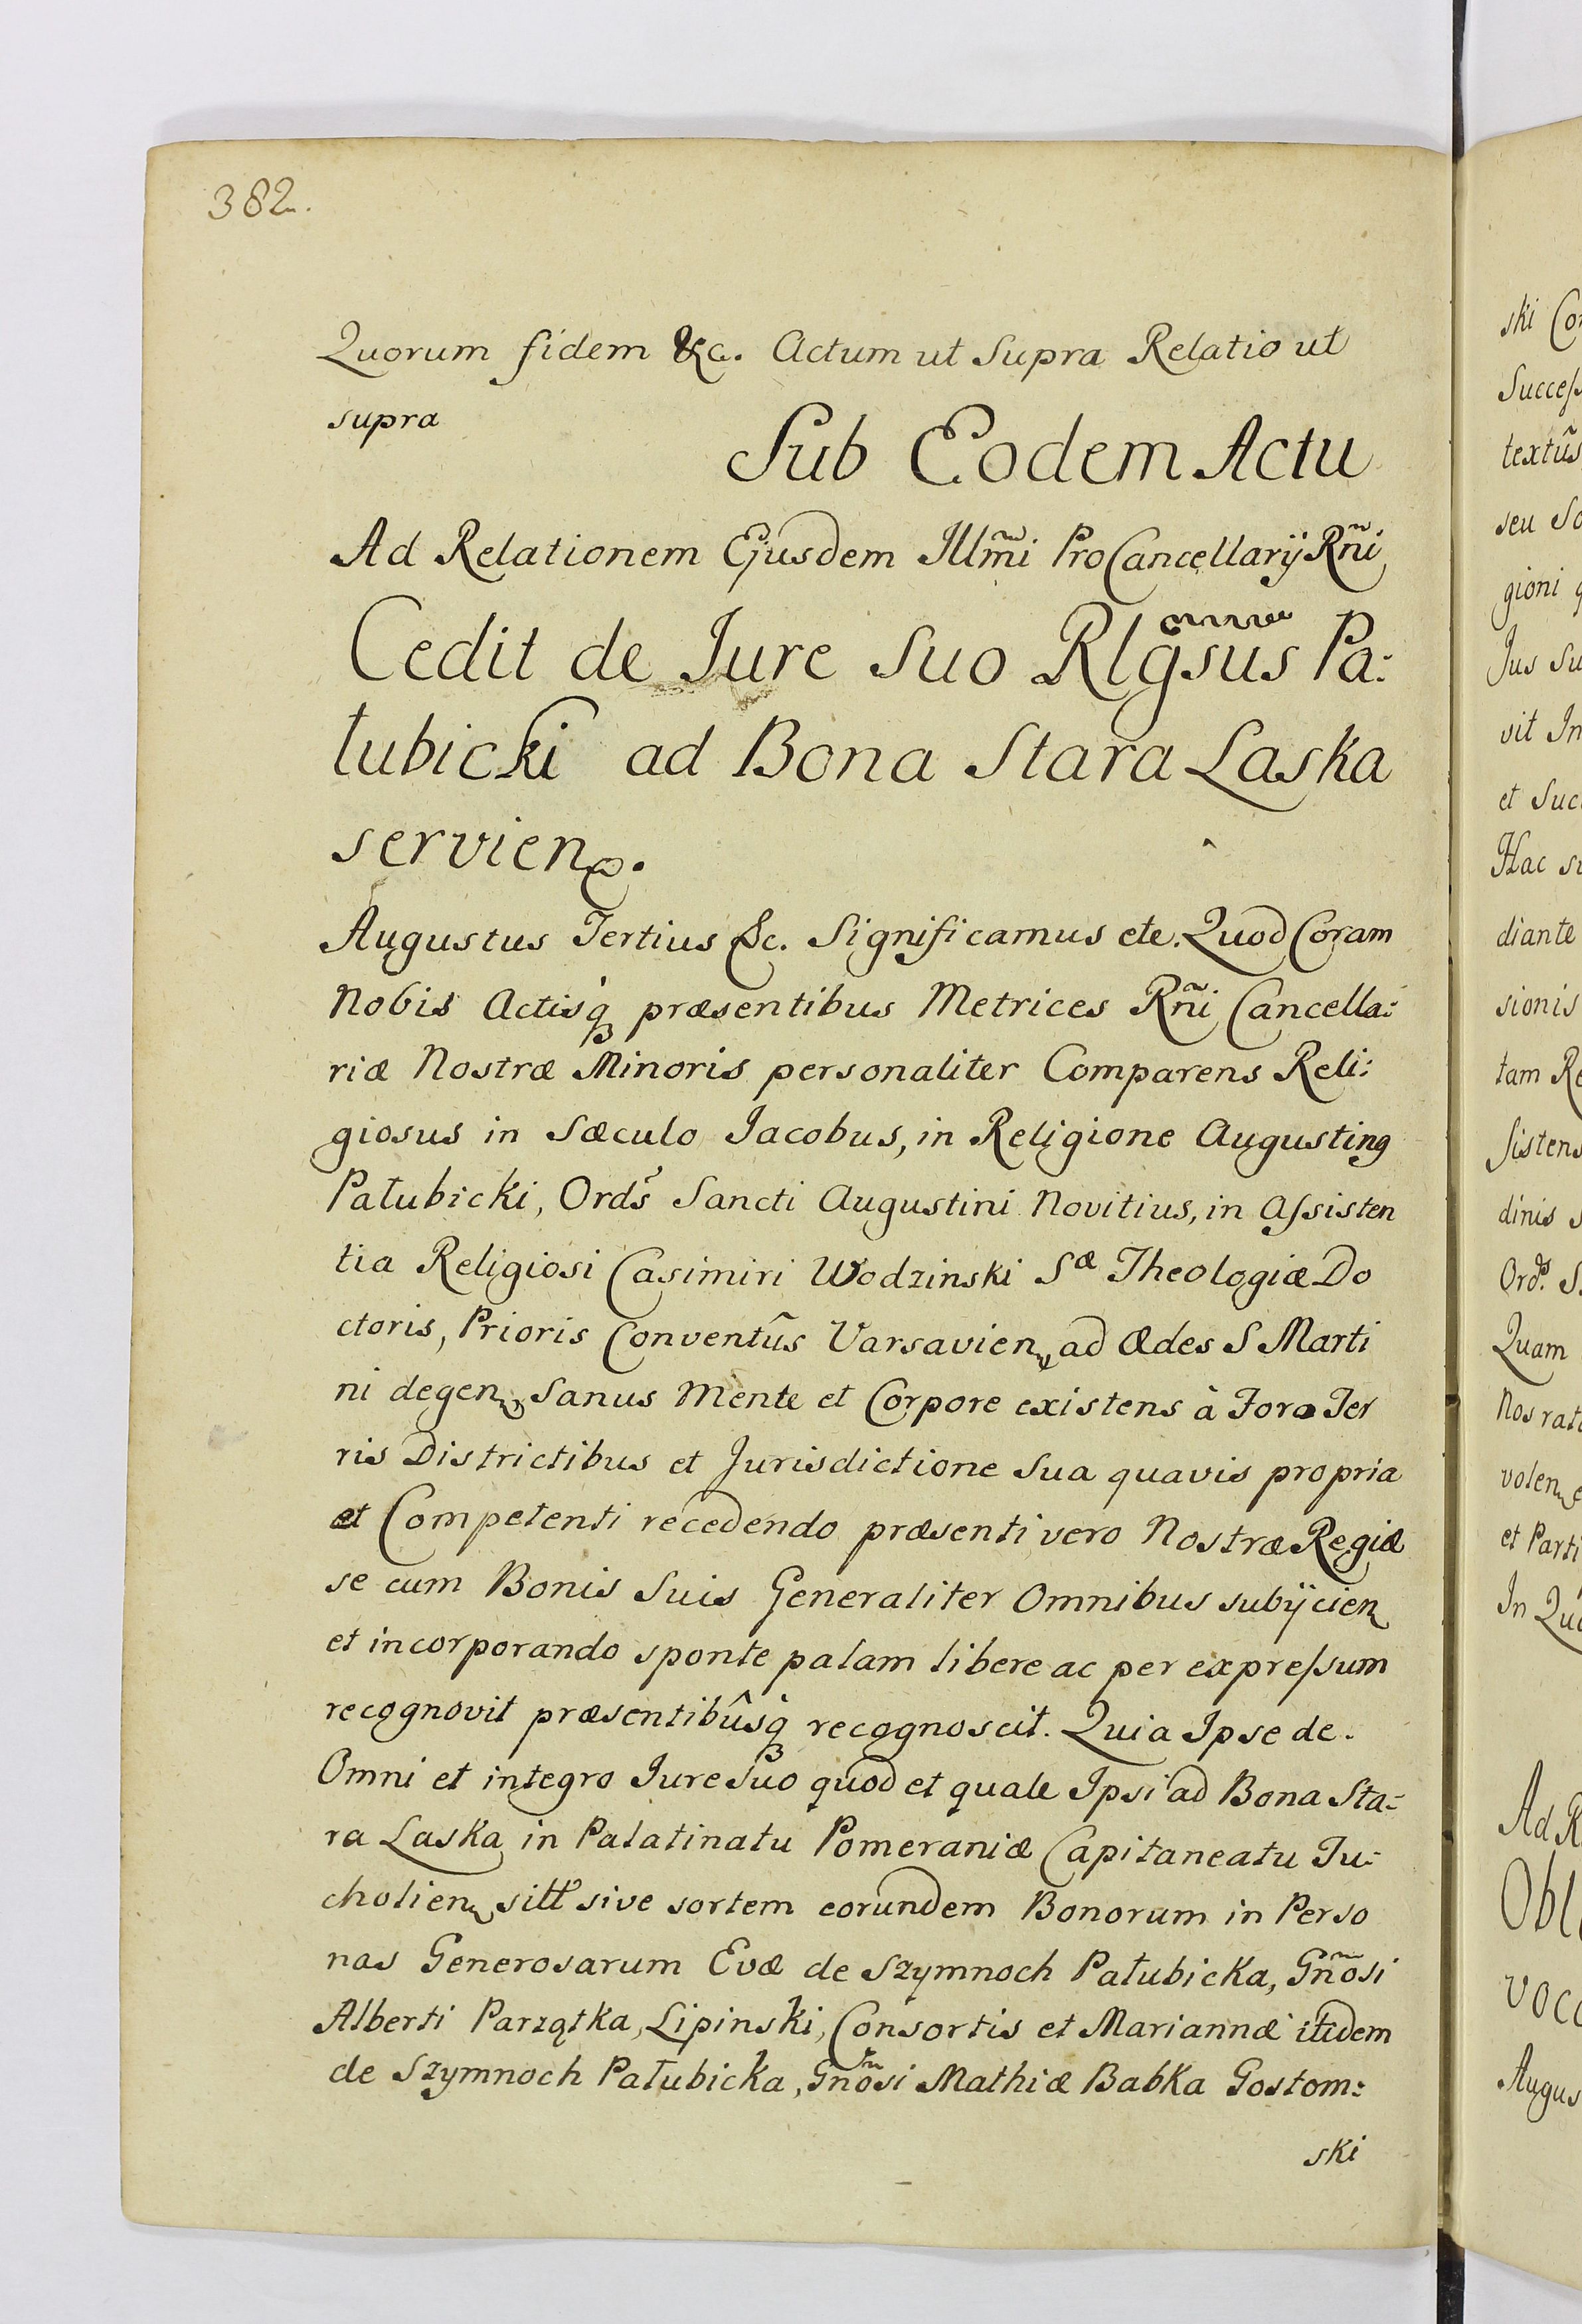 382.
Quorum fidem &c. Actum ut Supra Relatio ut
supra
Sub Eodem Actu
Ad Relationem Ejusdem Illm̃i ProCancellarij Rñi
Cedit de Jure Suo Rlg̃sus Pa:
łubicki ad Bona Stara Laska
servien.
Augustus Tertius &c. Significamus etc. Quod Coram
Nobis Actisq̀ præsentibus Metrices Rñi Cancella:
riæ Nostræ Minoris personaliter Comparens Reli:
giosus in Sæculo Jacobus, in Religione Augustin9
Pałubicki, Ords Sancti Augustini Novitius, in Aſsisten
tia Religiosi Casimiri Wodzinski Sæ Theologiæ Do
ctoris, Prioris Conventũs Varsavien ad Ædes S Marti
ni degen Sanus Mente et Corpore existens à Foro Ter
ris Districtibus et Jurisdictione Sua quavis propria
et Competenti recedendo præsenti vero Nostræ Regiæ
se cum Bonis Suis Generaliter Omnibus subijcien
et incorporando sponte palam libere ac per expreſsum
recognovit præsentibûsq̀ recognoscit. Quia Ipse de
Omni et integro Jure Suo quod et quale Ipsi ad Bona Sta:
ra Laska in Palatinatu Pomeraniæ Capitaneatu Tu:
cholien sitt sive sortem eorundem Bonorum in Perso
nas Generosarum Evæ de Szymnoch Pałubicka, Gñosi
Alberti Parzątka, Lipinski, Consortis et Mariannæ itidem
de Szymnoch Pałubicka, Gñosi Mathiæ Babka Gostom:
ski
ski
textũs
seu
gioni
Jus
vit
et
Hac
diante
sionis
tam
sistens
dinis
Ords.
Quam
Nos
volen
et
In
Ad